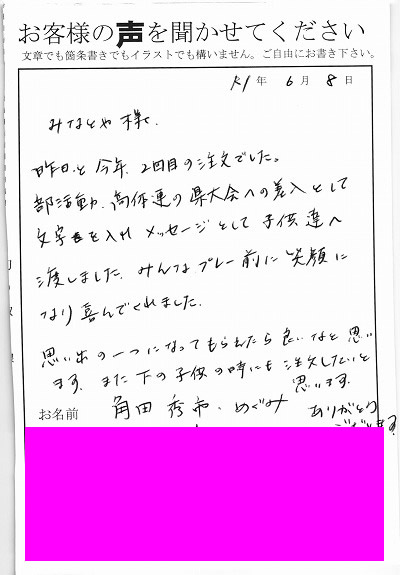 お客様の声を聞かせてください
文章でも箇条書きでもイラストでも構いません。ご自由にお書き下さい。
R1年 6月 8日
みなとや 様.
昨日と今年、2回目の注文でした。
部活動、高体連の県大会への差入として
文字を入れ メッセージとして 子供達へ
渡しました。みんなプレー前に笑顔に
なり喜んでくれました。
思い出の一つになってもらえたら良いなと思い
ます。また下の子供の時にも注文したいと
思います。
お名前 角田 秀市・めぐみ
ありがとう
ございます。